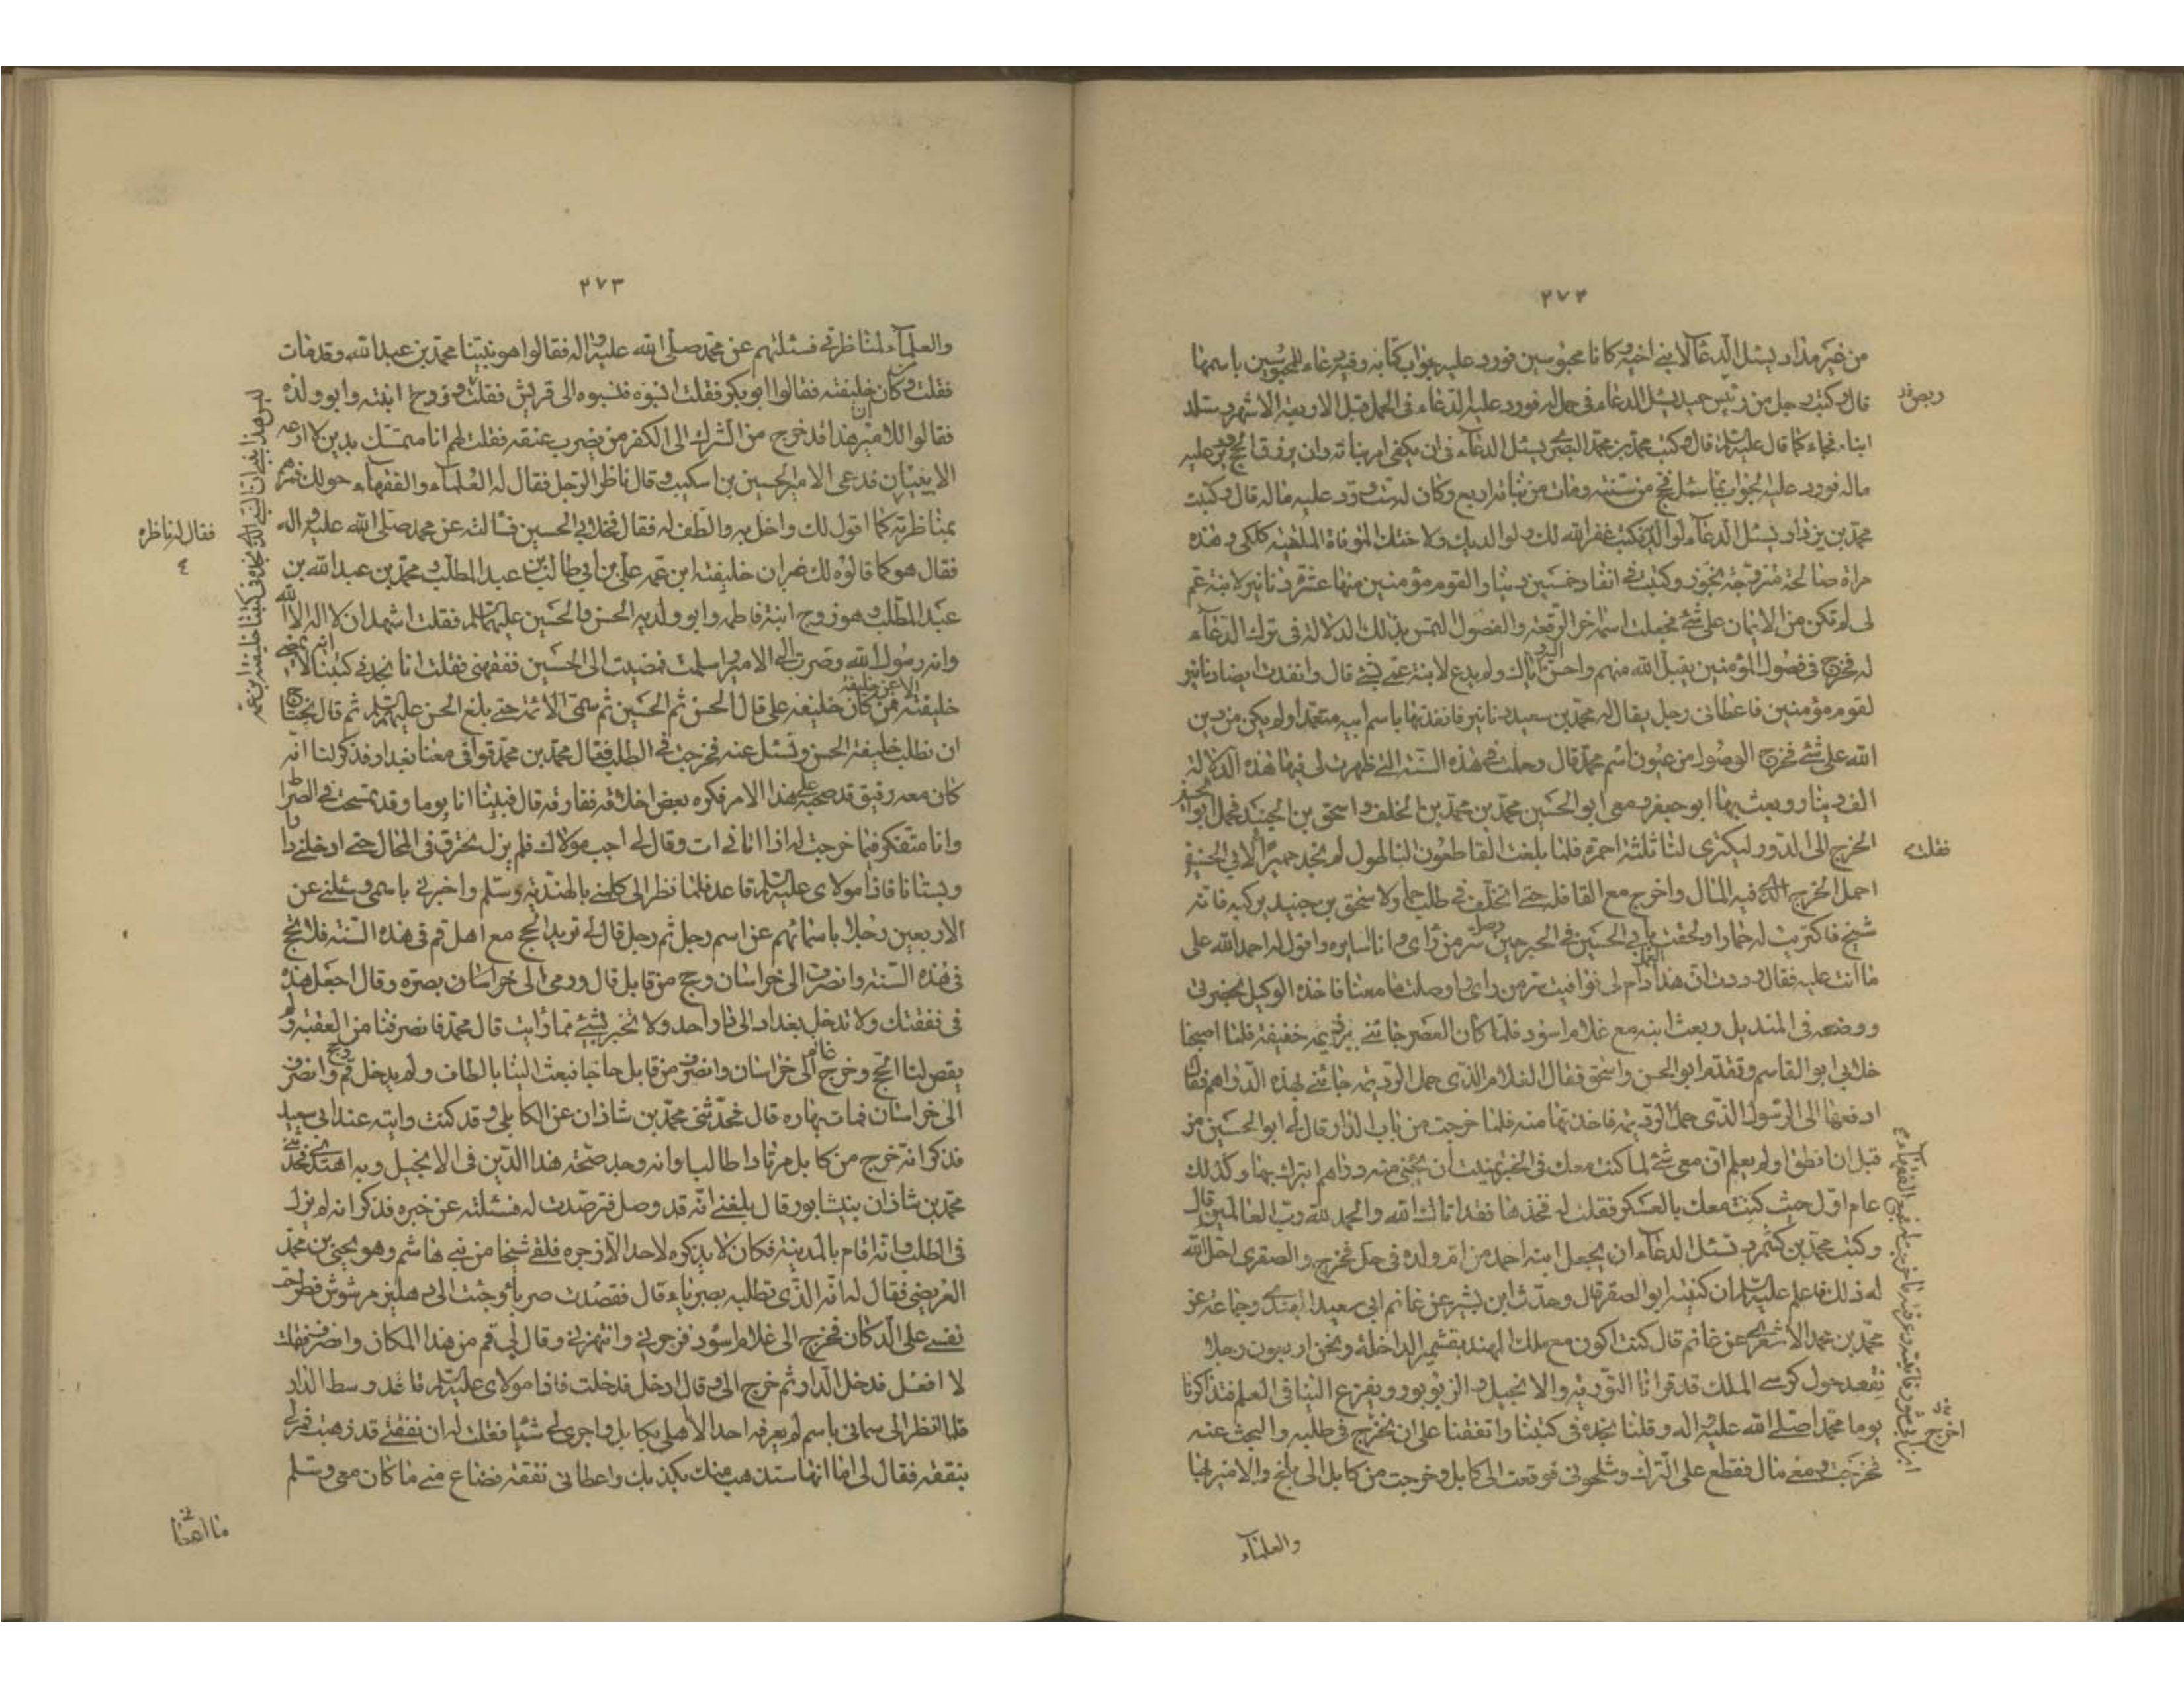 ٢٧٢
من غير مذار يسئل الدعا لابنى اخيه وكانا محبوسين فورد عليه جواب كتابه وفيه دعاء للمحبوسين باسمهما
قال وكتب رجل من ربض حميد يسئل الدعاء فى حمل له فورد عليه الدعاء فى الحمل قبل الاربعة الاشهر وستلد
ابنا فجاء كما قال عليه السلم قال وكتب محمد بن محمد البصرى يسئل الدعاء فى ان يكفى امر بناته وان يرزق الحج ويرد عليه
ماله فورد عليه الجواب بما سئل فحج من سنته ومات من بناته اربع وكان له ست ورد عليه ماله قال وكتب
محمد بن يزداد يسئل الدعاء لوالديه فكتب غفر الله لك ولوالديك ولاختك المتوفاة الملقبة كلكى وهذه
مراة صالحة متزوجة بجوار وكتبت فى انفاد خمسين دينارا لقوم مؤمنين منها عشرة دنانير لابنة عم
لى لم تكن من الايمان على شئ فجعلت اسمها اخر الرقعة والفصول التمس بذلك الدلالة فى ترك الدعاء
له فخرج فى فصول المؤمنين يقبل الله منهم واحسن اليهم واثابك ولم يدع لابنة عمى بشئ قال وانفدت ايضا دنانير
لقوم مؤمنين فاعطانى رجل يقال له محمد بن سعيد دنانير فانفذتها باسم ابيه متعمدا ولم يكن من دين
الله على شئ فخرج الوصول من عنون اسم محمد قال وحملت فى هذه السنة التى ظهرت لى فيها هذه الدلالة
الف دينار وبعث بها ابو جعفر ومعى ابو الحسين محمد بن محمد بن الخلف واسحق بن الجنيد فحمل ابو الحسين
الخرج الى الدور ليكترى لنا ثلثة احمرة فلما بلغت القاطون لم نجد حميرا فقلت لابى الحسين
احمل الخرج الذى فيه المال واخرج مع القافلة حتى اتخلف فى طلب حمار لاسحق بن جنيد يركبه فانه
شيخ فاكتريت له حمارا ولحقت بابى الحسين فى الحير حير سر من راى وانا اسايره واقول له احمد الله على
ما انت عليه فقال وددت ان هذا العمل دام لى فوافيت سر من راى واوصلت ما معنا فاخذه الوكيل بحضرتى
ووضعه فى المنديل وبعث به مع غلام اسود فلما كان العصر جائنى برزيمة خفيفة فلما اصبحنا
خلابى ابو القاسم وتقدم ابو الحسن واسحق فقال الغلام الذى حمل الرزيمة جائنى بهذه الدراهم فقال
ادفعها الى الرسول الذى حمل الرزيمة فاخذتها منه فلما خرجت من باب الدار قال لى ابو الحسين من
قبل ان انطق او لم يعلم ان معى شئ لما كنت معك فى الحير تمنيت ان يجئنى منه دراهم اتبرك بها وكذلك
عام اول حيث كنت معك بالعسكر فقلت له فخذها فقد اتاك الله والحمد لله رب العالمين قال
وكتب محمد بن كشمرد تسئل الدعاء ان يجعل ابنه احمد من ام ولده فى حل فخرج والصقرى احل الله
له ذلك فاعلم عليه السلم ان كنيته ابو الصقر قال وحدث ابن بشير عن غانم ابى سعيد الهندى وجماعة عن
محمد بن محمد الاشعرى عن غانم قال كنت اكون مع ملك الهند بقشمير الداخلة ونحن اربعون رجلا
نقعد حول كرسى الملك قد قرانا التورية والانجيل والزبور ويفزع الينا فى العلم فتذاكرنا
يوما محمدا صلى الله عليه واله وقلنا نجده فى كتبنا واتفقنا على ان نخرج فى طلبه والبحث عنه
فخرجت ومعى مال فقطع على الترك وشلحونى فوقعت الى كابل وخرجت من كابل الى بلخ والامير بها
والعلماء
فقلت
٢٧٣
والعلماء لمناظرتى فسئلتهم عن محمد صلى الله عليه واله فقالوا هو نبينا محمد بن عبدالله وقد مات
فقلت ومن كان خليفته فقالوا ابو بكر فقلت انسبوه فنسبوه الى قريش فقلت وزوج ابنته وابو ولده
فقالوا للامير هذا قد خرج من الشرك الى الكفر من يضرب عنقه فقلت لهم انا متمسك بدين لا ادعه
الا ببيان فدعى الامير الحسين بن اسكيب وقال ناظر الرجل فقال له العلماء والفقهاء حولك فمرهم
بمناظرته كما اقول لك واخل به والطف له فقال فخلا بى الحسين فسالته عن محمد صلى الله عليه واله
فقال هو كما قالوه لك غير ان خليفته ابن عمه على بن ابى طالب بن عبدالمطلب ومحمد بن عبدالله بن
عبدالمطلب وهو زوج ابنته فاطمه وابو ولديه الحسن والحسين عليهما السلم فقلت اشهد ان لا اله الا الله
وانه رسول الله وصرت الى الامير واسلمت فمضيت الى الحسين ففقهنى فقلت انا نجد فى كتبنا لا يمضى
خليفته الا عن خليفة فمن كان خليفة على قال الحسن ثم الحسين ثم سمى الائمة حتى بلغ الحسن عليهم السلم ثم قال تحتاج
ان تطلب خليفة الحسن وتسئل عنه فخرجت فى الطلب فقال محمد بن محمد فوافى معنا بغداد فذكر لنا انه
كان معه رفيق قد صحبه على هذا الامر فكره بعض اخلاقه ففارقه قال فبينا انا يوما وقد تمسحت فى الصراة
وانا متفكر فيما خرجت له اذا اتانى ات وقال لى اجب مولاك فلم يزل يخترق فى المحال حتى ادخلنى دارا
وبستانا فاذا مولاى عليه السلم قاعد فلما نظر الى كلمنى بالهندية وسلم واخبرنى باسمى وسئلنى عن
الاربعين رجلا باسمائهم عن اسم رجل ثم رجل قال لى تريد الحج مع اهل قم فى هذه السنة فلا تحج
فى هذه السنة وانصرف الى خراسان وحج من قابل قال ورمى الى خراسان بصرة وقال اجعل هذه
فى نفقتك ولا تدخل بغداد الى دار احد ولا تخبر بشئ مما رايت قال محمد فانصرفنا من العقبة ولم
يقص لنا الحج وخرج غانم الى خراسان وانصرف من قابل حاجا فبعث الينا بالطاف ولم يدخل قم وحج وانصرف
الى خراسان فمات بها ره قال فحدثنى محمد بن شاذان عن الكابلى وقد كنت رايته عند ابى سعيد
فذكر انه خرج من كابل مرتادا طالبا وانه وجد صحة هذا الدين فى الانجيل وبه اهتدى فحدثنى
محمد بن شاذان بنيشابور قال بلغنى انه قد وصل فترصدت له فسئلته عن خبره فذكر انه لم يزل
فى الطلب وانه اقام بالمدينة فكان لا يذكره لاحد الا زجره فلقى شيخا من بنى هاشم وهو يحيى بن محمد
العريضى فقال له ان الذى تطلبه بصرياء قال فقصدت صرياء وجئت الى دهليز مرشوش فطرحت
نفسى على الدكان فخرج الى غلام اسود فزجرنى وانتهرنى وقال لى قم من هذا المكان وانصرف فقلت
لا افعل فدخل الدار ثم خرج الى وقال ادخل فدخلت فاذا مولاى عليه السلم قاعد وسط الدار
فلما نظر الى سمانى باسم لم يعرفه احد الا اهلى بكابل واجرى لى شيئا فقلت له ان نفقتى قد ذهبت فمر لى
بنفقة فقال لى اما انها ستذهب منك بكذبك واعطانى نفقة فضاع منى ما كان معى وسلم
ما اعطانى
فقال له ناظره